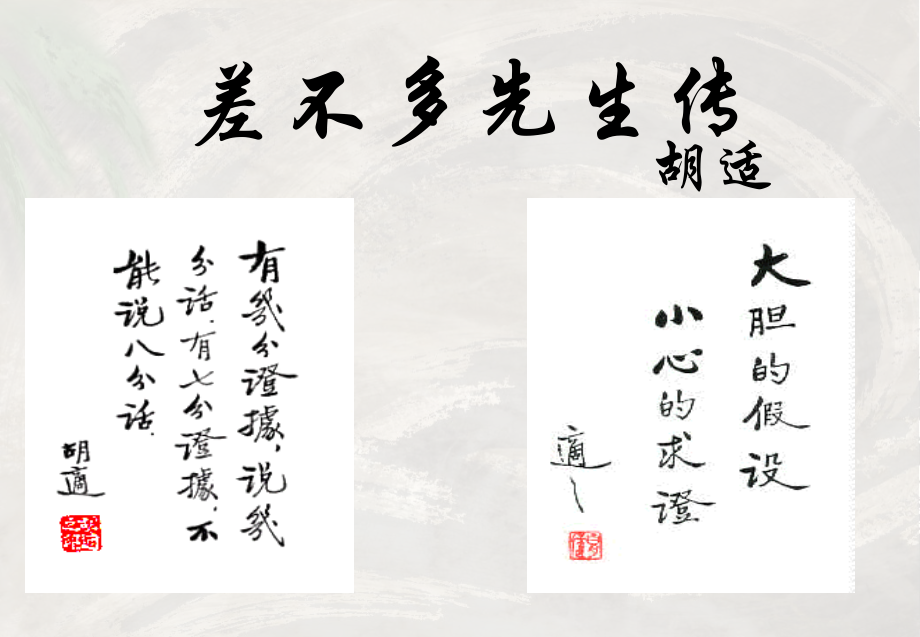 差不多先生传
胡适
有幾分證據，说幾
分话．有七分證據，不
能说八分话．
胡適
大胆的假设
小心的求證
適之